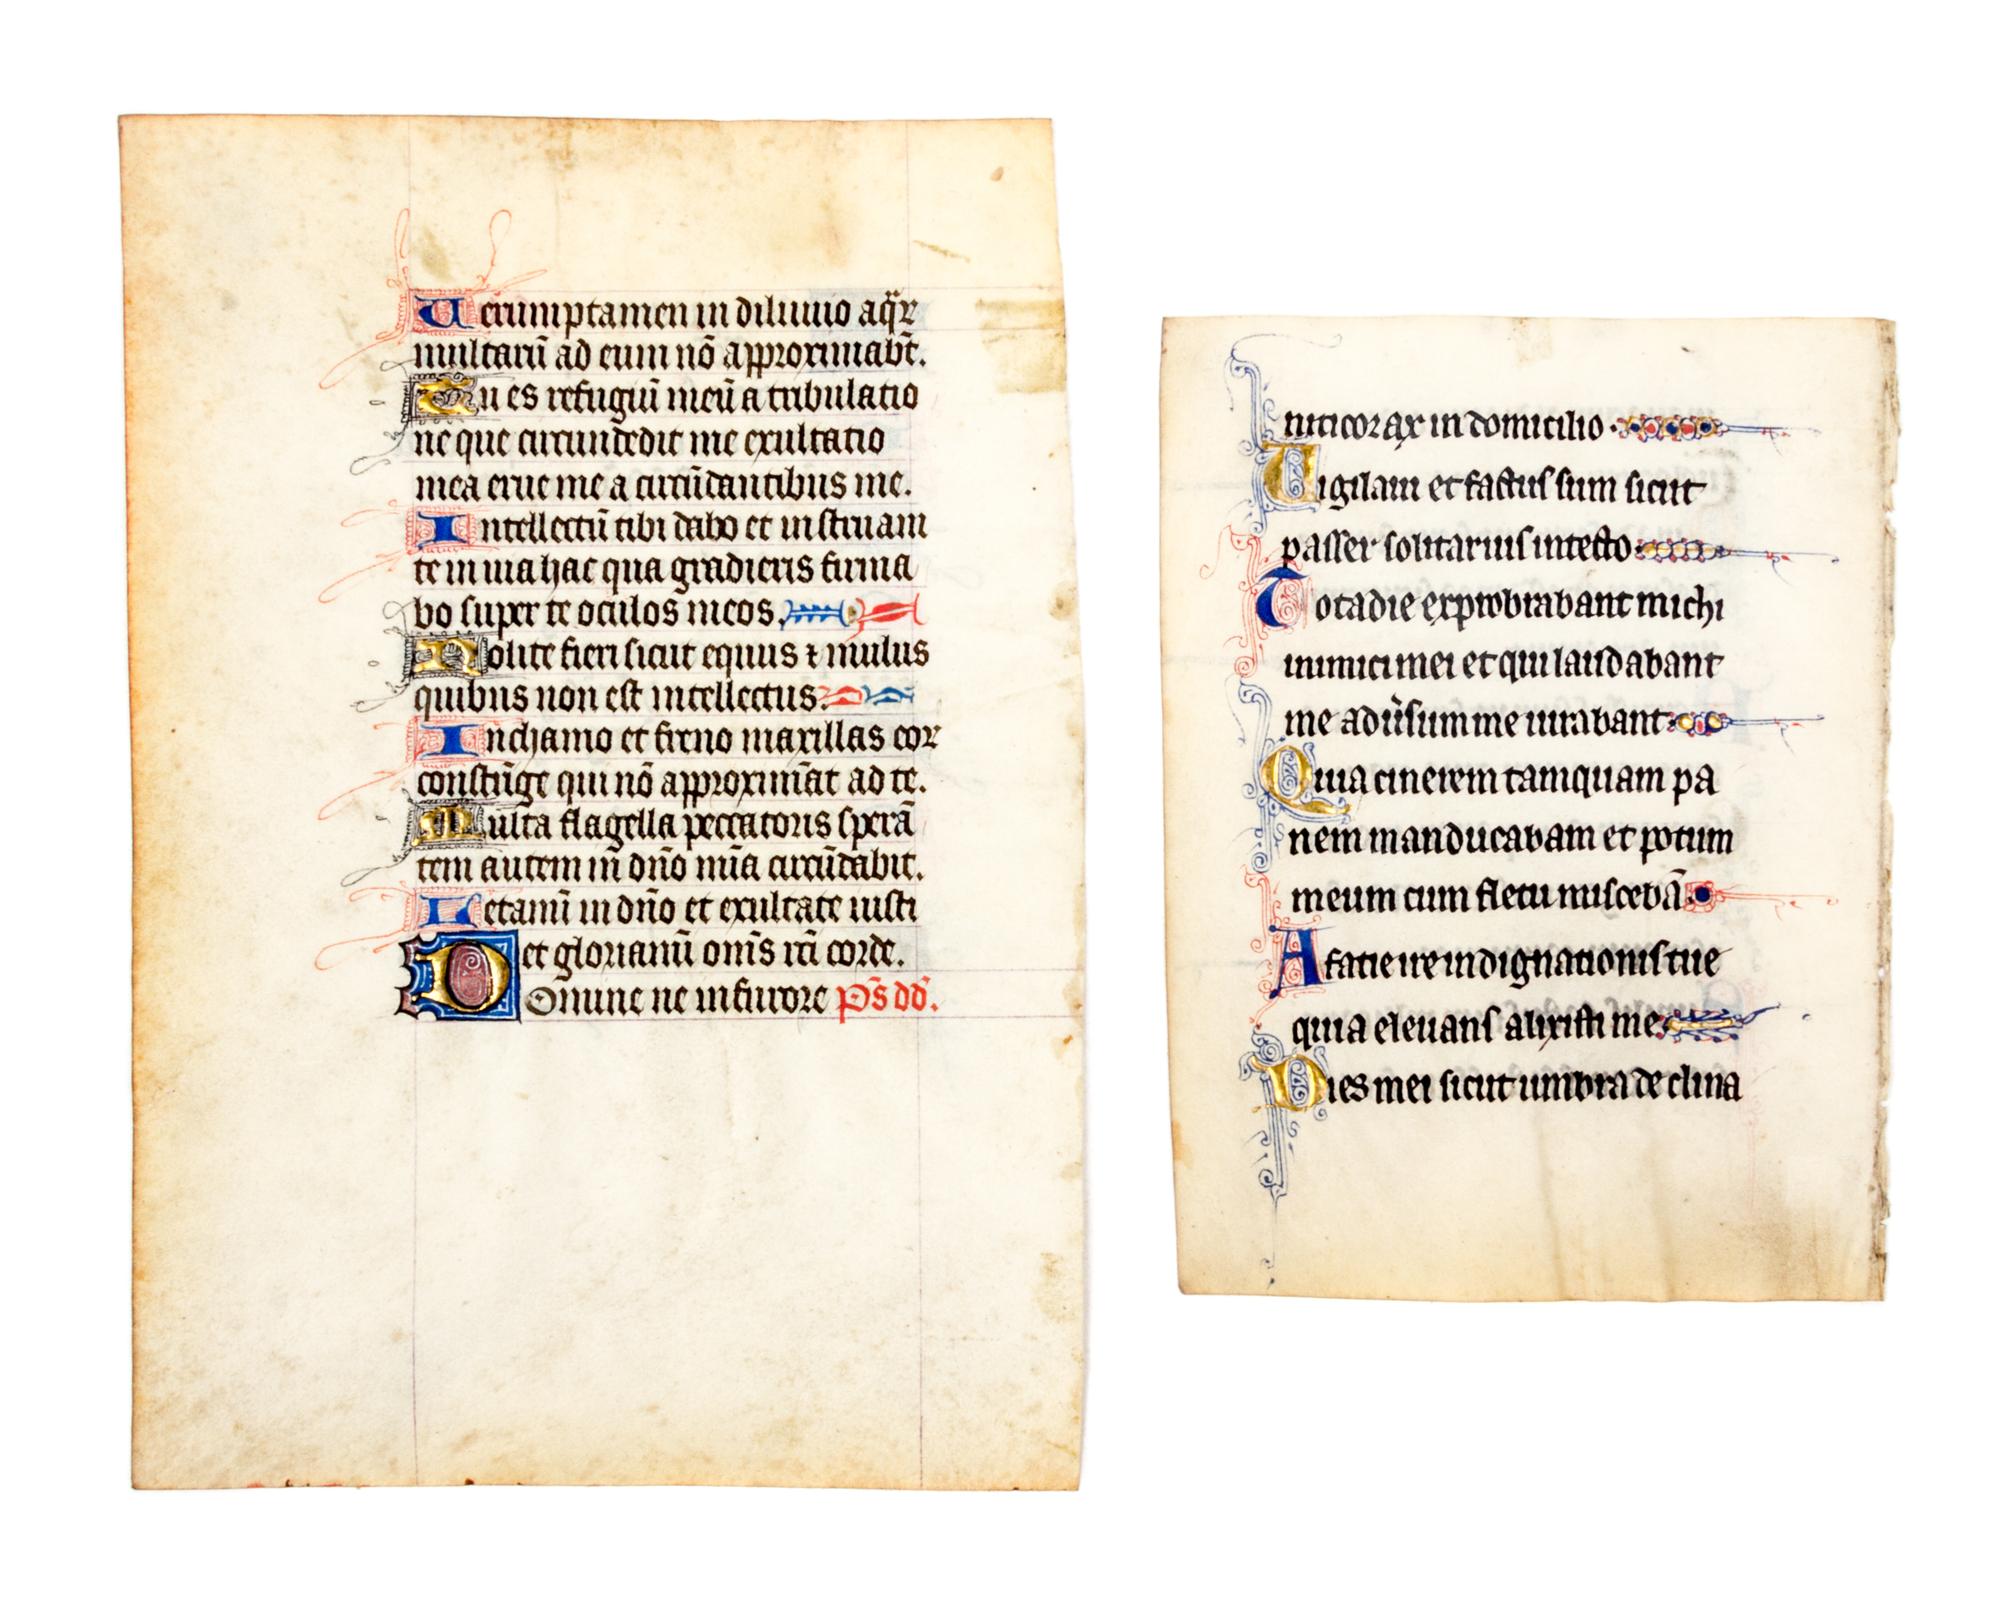 Uerumptamen in diluuio aqr̃
multarũ ad eum nõ approximabt̃.
Tu es refugiũ meũ a tribulatio
ne que circundedit me exultatio
mea erue me a circũdantibus me.
Intellectũ tibi dabo et instruam
te in uia hac qua gradieris firma
bo super te oculos meos.
Nolite fieri sicut equus ⁊ mulus
quibus non est intellectus.
In chamo et freno maxillas eor
constrĩge qui nõ approximãt ad te.
Multa flagella peccatoris sperã
tem autem in dño mĩa circũdabit.
Letamĩ in dño et exultate iusti
et gloriamĩ om̃s rc̃i corde.
Domine ne in furore p̃s dd̃.
niticorax in domicilio.
Uigilaui et factus sum sicut
passer solitarius intecto
Tota die exprobrabant michi
inimici mei et qui laudabant
me adũsum me iurabant
Quia cinerem tamquam pa
nem manducabam et potum
meum cum fletu miscebã
A facie ire indignationis tue
quia eleuans alixisti me
Dies mei sicut umbra declina